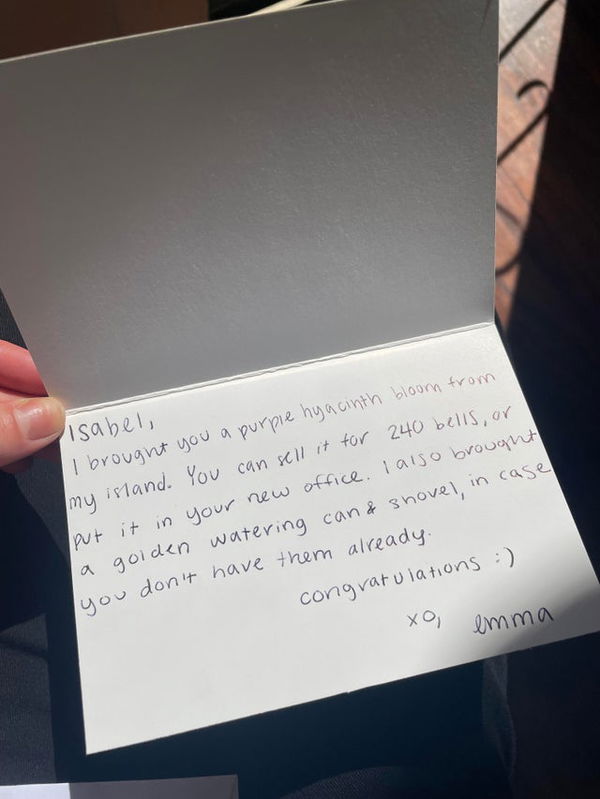 Isabel,
I brought you a purple hyacinth bloom from
my island. You can sell it for 240 bells, or
put it in your new office. I also brought
a golden watering can & shovel, in case
you don't have them already.
congratulations :)
xo, emma